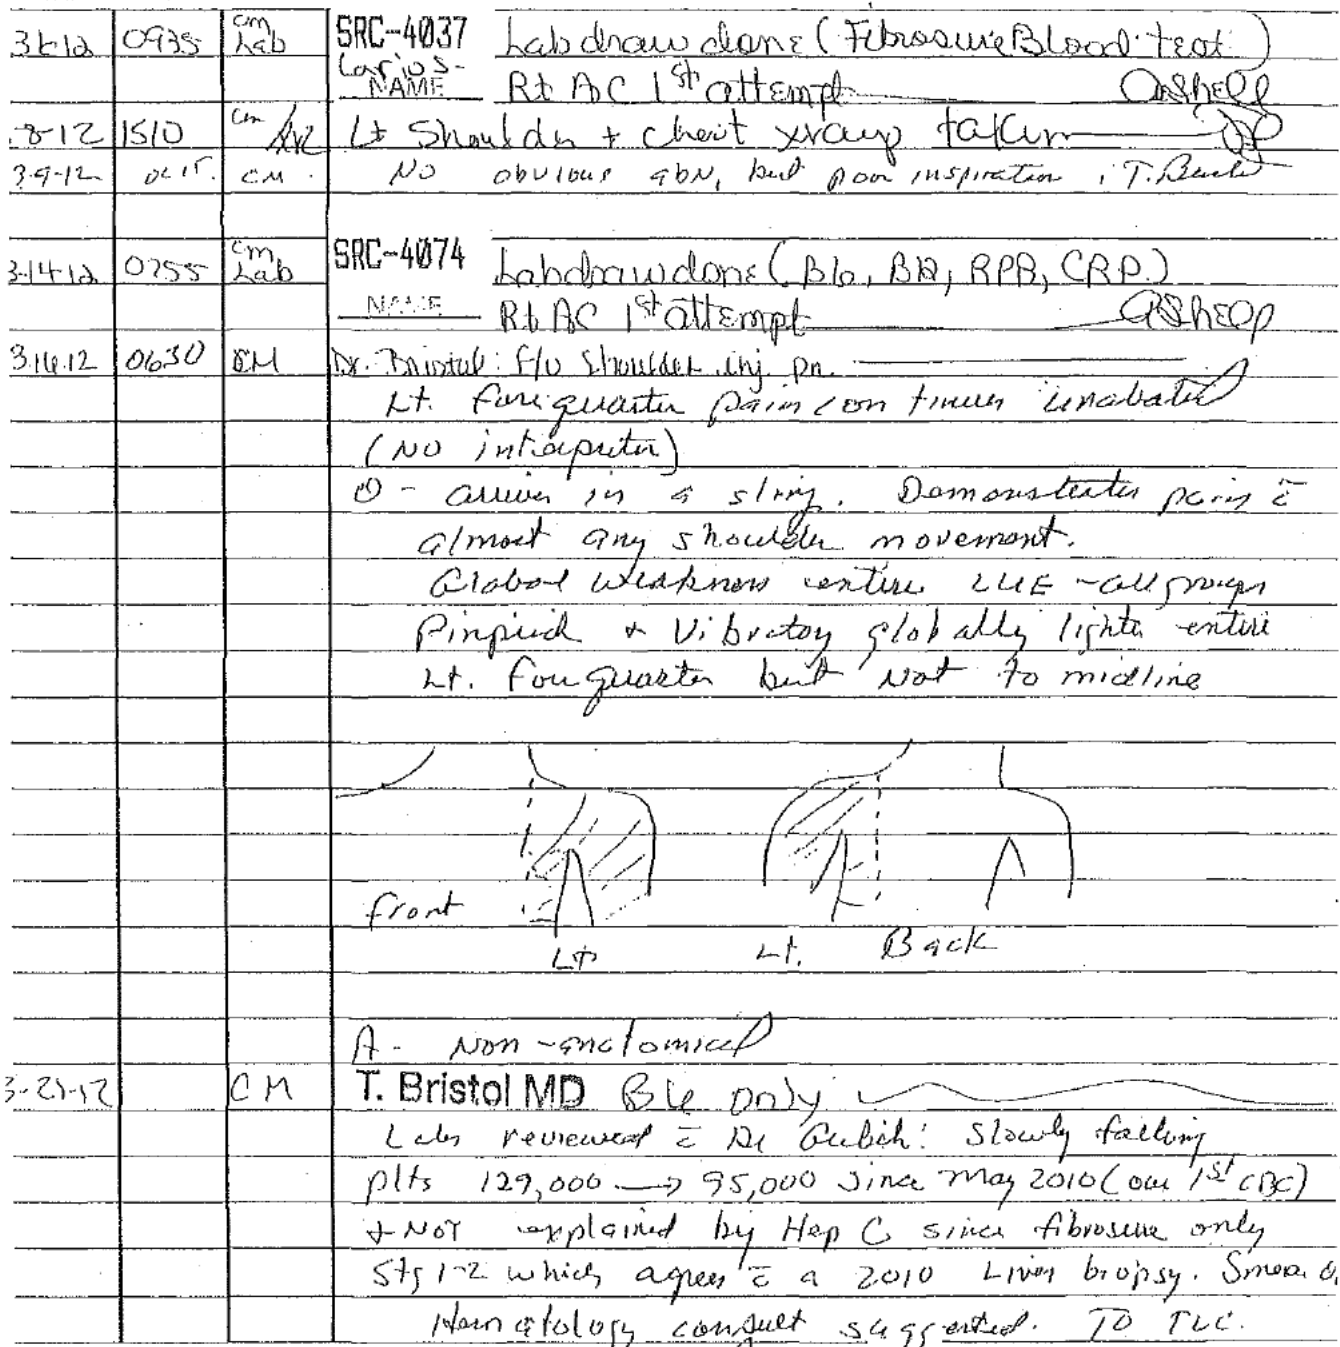 0935 cm Lab SRC-4037 Lab draw done (Fibrosure Blood test)
NAME Rt AC 1st attempt
8-12 1510 cm Lt Shoulder + chest xrays taken
3-9-12 CM No obvious abn, but poor inspiration
3-14-12 0755 cm Lab SRC-4074 Lab draw done
NAME Rt AC 1st attempt
3.16.12 0630 CM Dr. Bristol: f/u shoulder inj. pn.
Lt. forequarter pain continues unabated
(No interpreter)
O - arrives in a sling. Demonstrates pain c̄
almost any shoulder movement.
Global weakness entire LUE - all groups
Pinprick + Vibratory globally lighter entire
Lt. forequarter but not to midline
front
Lt Lt. Back
A - Non-anatomical
CM T. Bristol MD only
Labs reviewed c̄ Dr : Slowly falling
plts 129,000 → 95,000 since May 2010 (our 1st CBC)
+ Not explained by Hep C since fibrosure only
Stg 1-2 which agrees c̄ a 2010 Liver biopsy.
Hematology consult suggested. TO TLC.